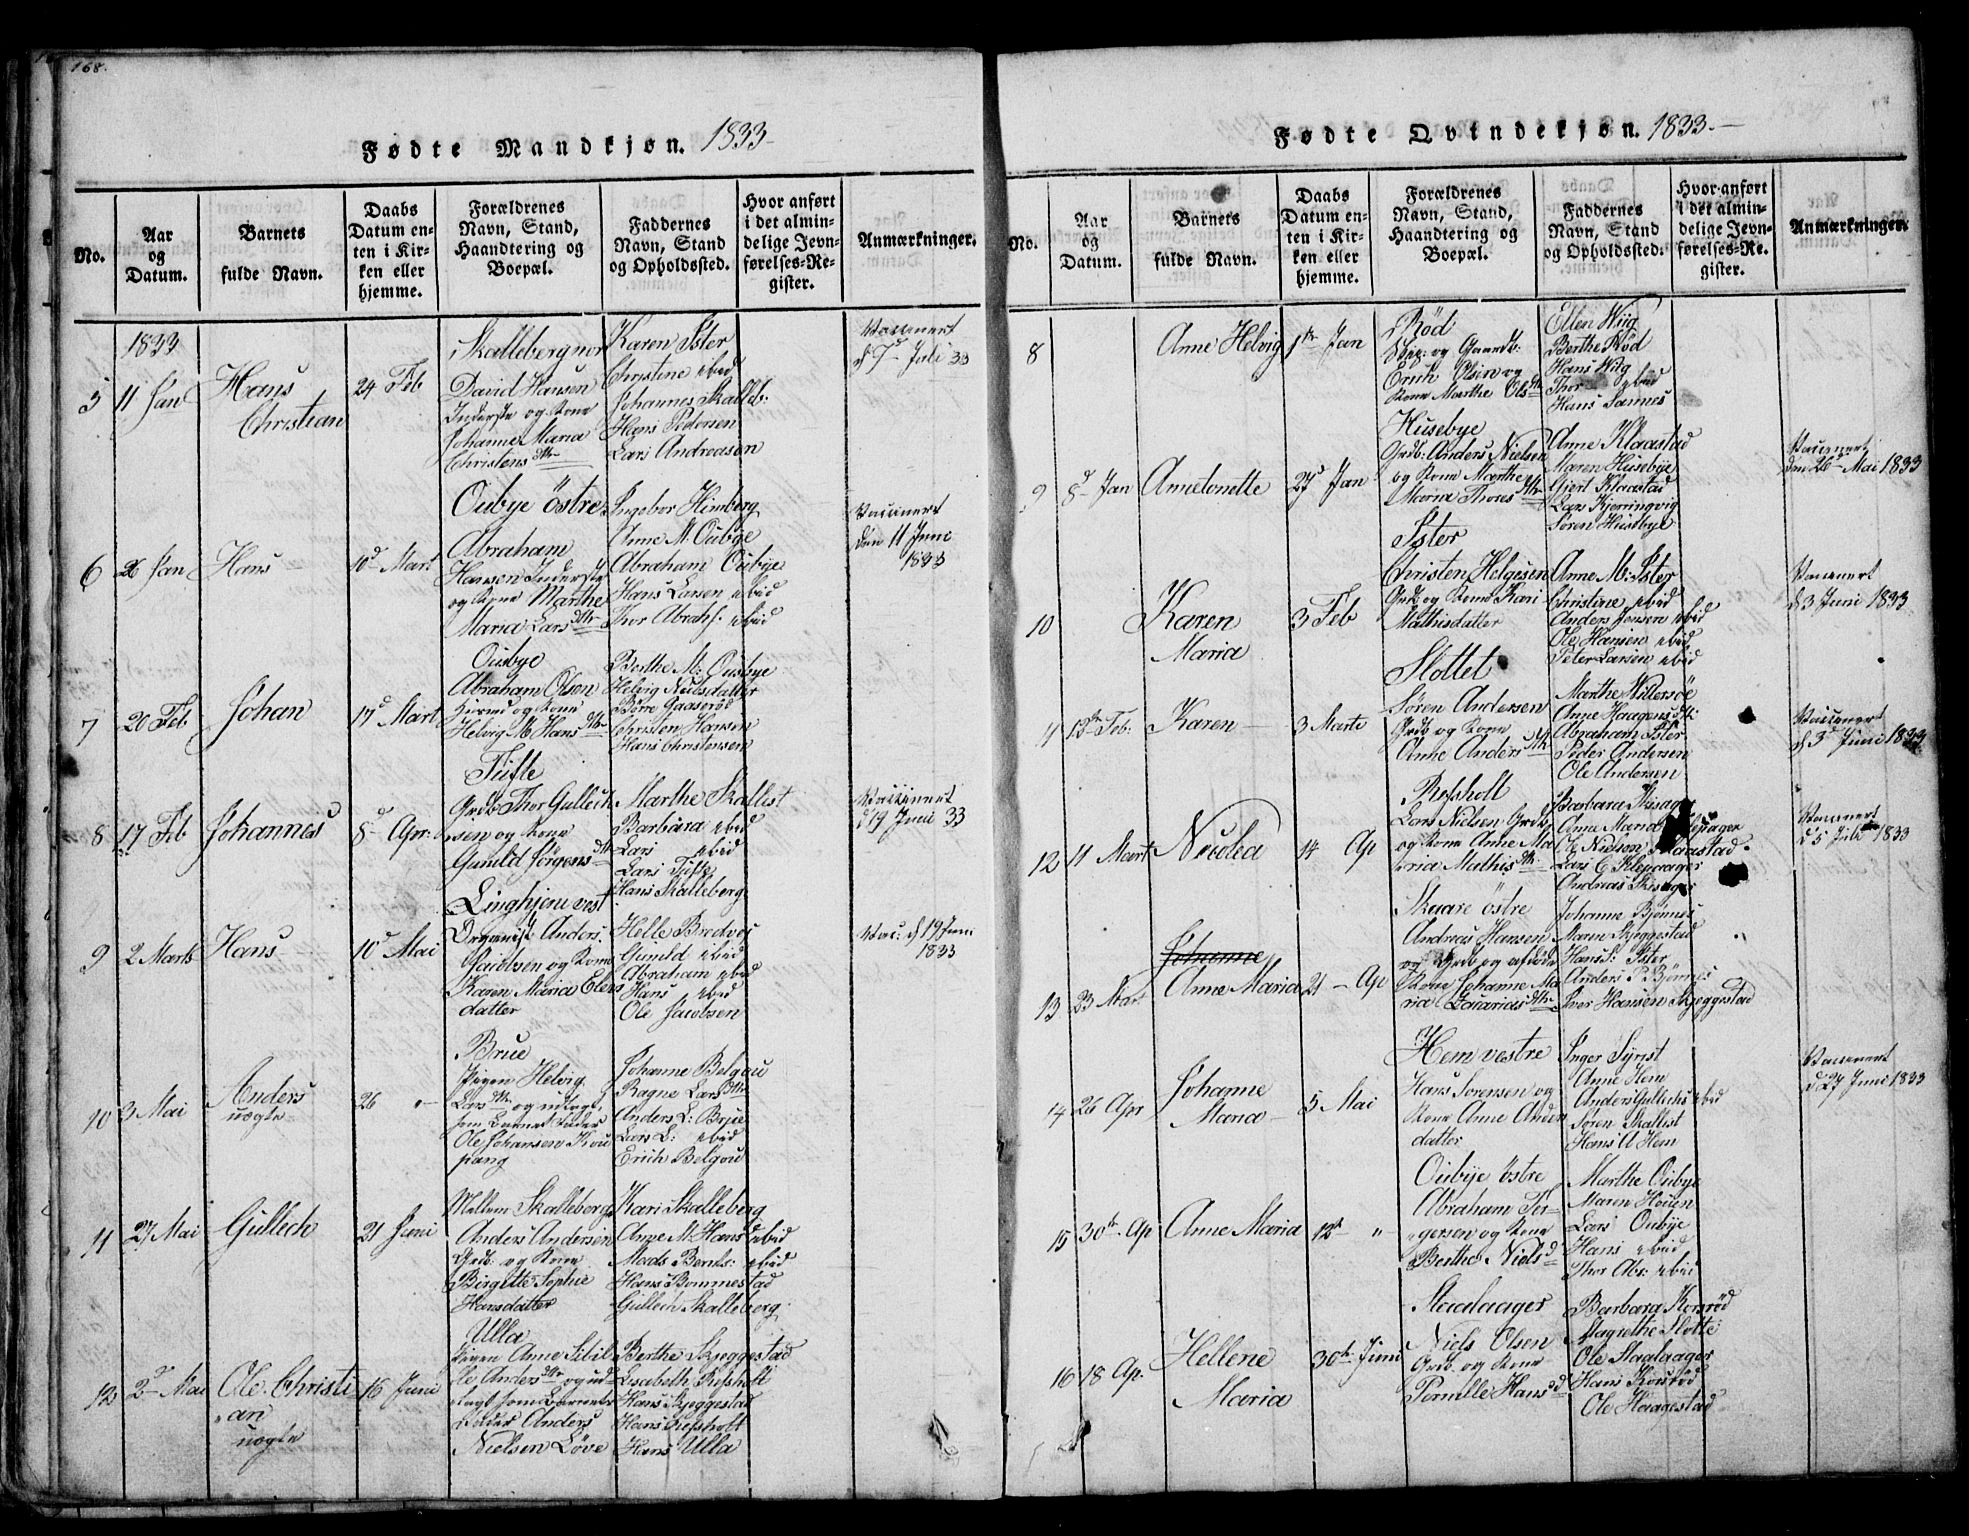 168.
Fødte Mandkjøn. 1833
No.
Aar og Datum.
Barnets fulde Navn.
Daabs Datum enten i Kirken eller hjemme.
Forældrenes Navn, Stand, Haandtering og Boepæl.
Faddernes Navn, Stand og Opholdssted.
Hvor anført i det almindelige Jevnførelses-Register.
Anmærkninger.
1833
5
11 Jan
Hans
Christian
24 Feb
Skallebergnor
David Hansen
Inderste og Kone
Johanne Maria
Christensdtr
Karen Ister
Christine ibid
Johannes Skalleb:
Hans Pedersen
Lars Andreasen
Vaccinert
d 7d Juli 33
6
26 Jan
Hans
10d Mart
Oubye östre
Abraham
Hansen Inderste
og Kone Marthe
Maria Larsdtr
Ingebor Himberg
Anne M. Oubye
Abraham Oubye
Hans Larsen ibid
Thor Abrahs. ibid
Vaccinert
den 11 Juni
1833
7
20 Feb
Johan
17d Mart
Ousbye
Abraham Olsen
og Kone
Helvig M. Hansdtr
Berthe M: Ousbye
Helvig Neilsdatter
Börre Gaaserød
Christen Hansen
Hans Christensen
8
17 Feb
Johannes
8d Apr:
Tufte
Grdb: Thor Gullech
sen og Kone
Gunild Jörgensdtr
Marthe Skallist
Barbara ibid
Lars ibid
Lars Tufte
Hans Skalleberg
Vaccinert
d 19 Juni 33
9
2 Marts
Hans
10d Mai
Linghjem vest
Organist Anders
Jacobsen og Kone
Karen Maria Elers
datter
Helle Bredvei
Gunild ibid
Abraham ibid
Hans ibid
Ole Jacobsen
Vac: d 19 Juni
1833
10
3 Mai
Anders
uægte
26 "
Brue
Pigen Helvig
Larsdtr og udlagt
som Barnefader
Ole Johansen Kou
pang
Johanne Belgou
Ragne Larsdtr
Anders L: Brue
Lars L: ibid
Erich Belgou
11
27 Mai
Gullech
21 Juni
Mellem Skalleberg
Anders Andersen
Grdb: og Kone
Birgitte Sophie
Hansdatter
Kari Skalleberg
Anne M. Hans ibid
Mads Bernts: ibid
Hans Bommestad
Gullech Skalleberg
12
2d Mai
Ole Christi
an
uægte
16 Juni
Ulla
Pigen Anne Sibil
le Andersdtr og ud
lagt som Barne
fader Anders
Nielsen Löve
Berthe Skjeggestad
Lisabeth Refsholt
Hans Skjeggestad
Hans Refsholt
Hans Ulla
Fødte Qvindekjøn. 1833.
No.
Aar og Datum.
Barnets fulde Navn.
Daabs Datum enten i Kirken eller hjemme.
Forældrenes Navn, Stand, Haandtering og Boepæl.
Faddernes Navn, Stand og Opholdssted.
Hvor anført i det almindelige Jevnførelses-Register.
Anmærkninger.
8
Anne Helvig
1ste Jan
Röd
Skip: og Gaardb:
Erich Olsen og
Kone Marthe Olsdtr
Ellen Wiig
Berthe Röd
Hans Wiig
Thor ibid
Hans Sannes
9
8d Jan
Annetonette
27d Jan
Husebye
Grdb: Anders Nielsen
og Kone Marthe
Maria Thoresdtr
Anne Klaastad
Maren Husebye
Gjert Klaastad
Lars Kjerringvig
Sören Husebye
Vaccinert
den 26d Mai 1833
10
Karen
Maria
3 Feb
Ister
Christen Helgesen
Grdb og Kone Kari
Mathisdatter
Anne M: Ister
Christine ibid
Anders Jensen ibid
Ole Hansen ibid
Peter Larsen ibid
Vaccinert
d 3 Juni 1833
11
13de Feb:
Karen
3 Marts
Slottet
Sören Andersen
Grdb og Kone
Anne Andersdtr
Marthe Vittersöe
Anne Haagensdtr
Abraham Ister
Peder Andersen
Ole Andersen
Vaccinert
d 3d Juni 1833
12
11 Mart
Nicolea
14 Ap
Refsholt
Lars Nielsen Grdb
og Kone Anne Ma
ria Mathisdtr
Barbara Skisager
Anne Maria Klepager
Ole Nielsen Klaastad
Lars C. Klepaager
Andreas Skisager
Vaccinert
d 5 Juli 1833
13
23 Mart
Johanne
Anne Maria
21 Ap
Skaare östre
Andreas Hansen
og Grdb og afdöde
Kone Johanne Ma
ria Zacariasdtr
Johanne Bjönnes
Maren Skjeggestad
Hans S: Ister
Anders P. Bjönnes
Iver Hansen Skjeggestad
14
26 Apr
Johanne
Maria
5 Mai
Hem vestre
Hans Sorensen og
Kone Anne Anders
datter
Inger Syrist
Anne Hem
Anders Gullechs ibid
Sören Skallist
Hans U Hem
Vaccinert
d 27 Juni 1833
15
30te Ap
Anne Maria
12te "
Oubye östre
Abraham Tor-
gersen og Kone
Berthe Nielsd
Marthe Oubye
Maren Houen
Lars Oubye
Hans ibid
Thor Abr: ibid
16
18 Ap.
Hellene
Maria
30te Juni
Staalaager
Niels Olsen
Grdb. og Kone
Pernille Hansd
Barbara Korsröd
Magrethe Slotte
Ole Staalaager
Hans Korsröd
Ole Haagestad